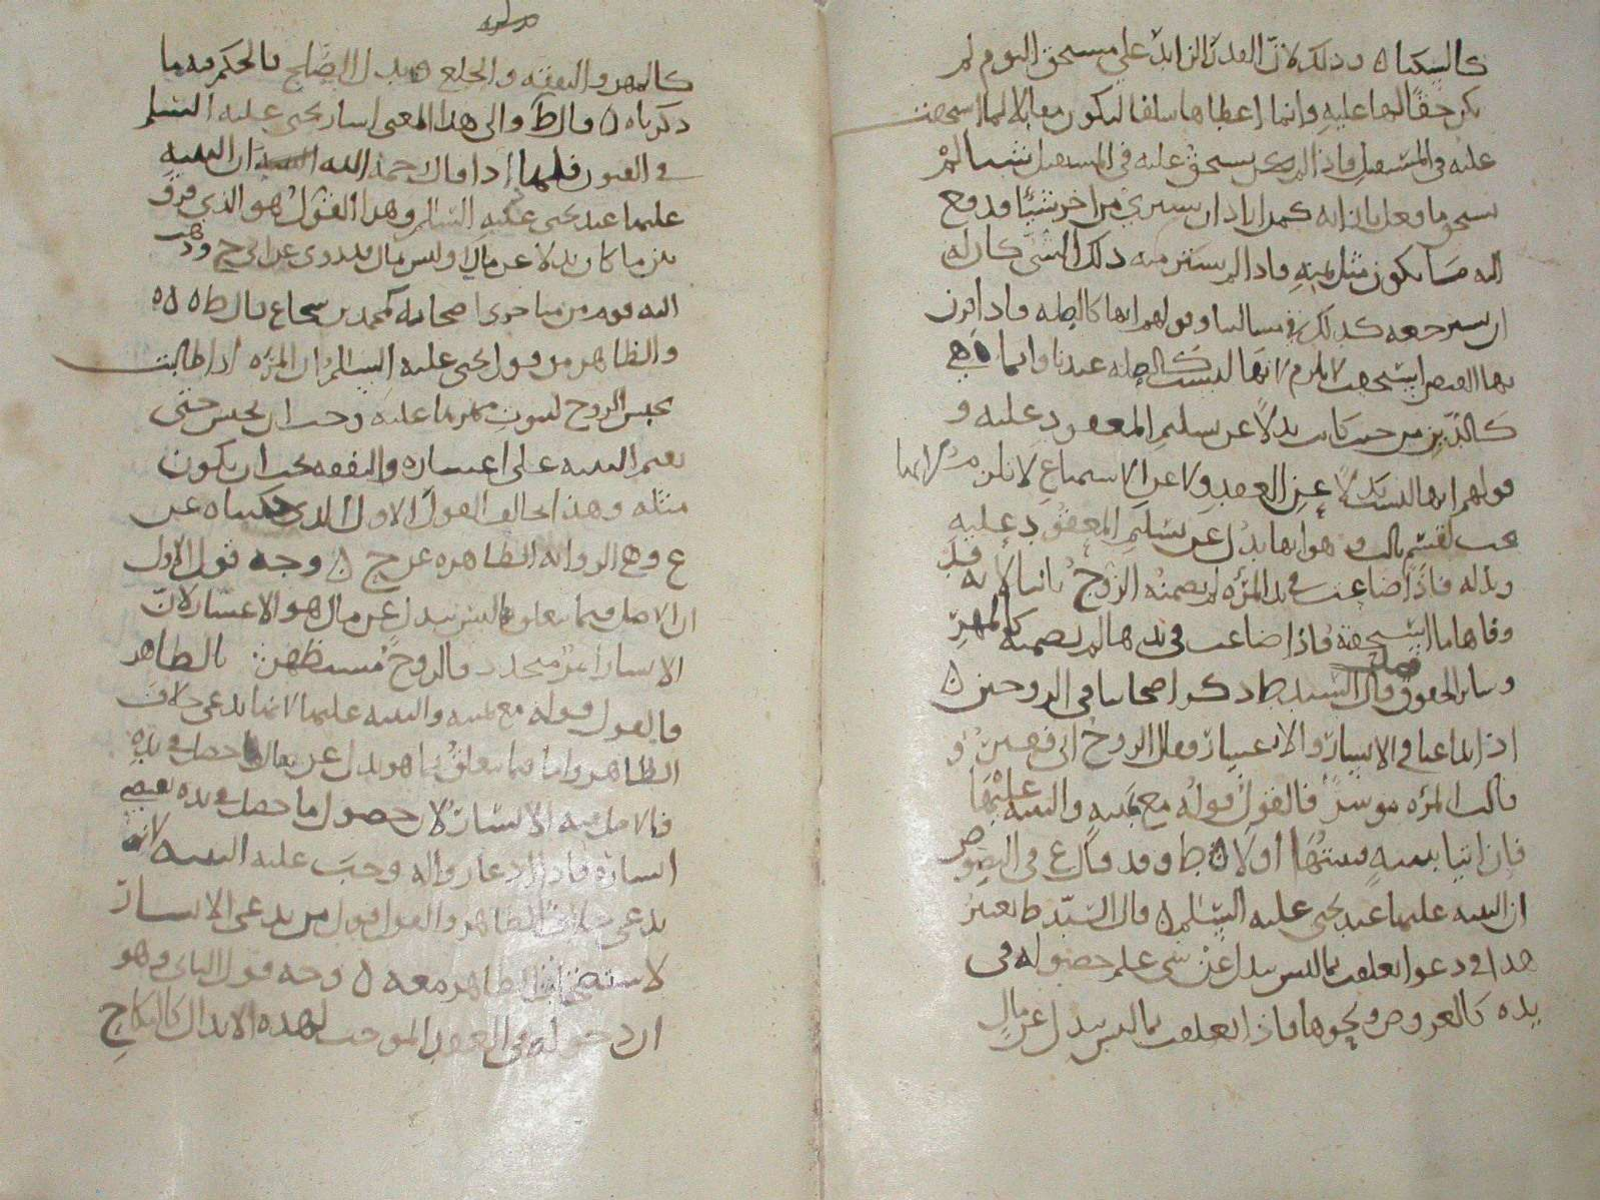 كالسكنا ٥ وذلك لان القدر الزايد على مستحق اليوم لم
يكن حقا لها عليه وانما اعطاها سلفا ليكون مقابلا لما استحقت
عليه في المستقبل فاذا لم يستحق عليه في المستقبل شيا لم
اليه ما يكون مثل ثمنه فاذا لم يستر منه ذلك الشي كان له
ان يسترجعه كذلك في مسالتنا وقولهم انها كالصله فاذا اقترن
بها القبض لم يلزم لانها ليست كالصله عندنا وانما هي
كالدين من حيث كانت بدلا عن تسليم المعقود عليه و
قولهم انها ليست بدلا عن العقد ولا عن الاستمتاع لا يلزم
وهو انها بدل عن تسليم المعقود عليه
وبذله فاذا ضاعت في يد المرءه لم يضمنه الزوج ثانيا لانه قد
وفاها ما استحقه فاذا ضاعت في يدها لم يضمنه كالمهر
وساير الحقوق فصل قال السيد ط ذكر اصحابنا في الزوجين ٥
اذا تداعيا في الايسار والاعسار فقال الزوج اني فقير و
قالت المرءه موسر فالقول قوله مع يمينه والبينه عليها
فان اتيا ببينه فبينتها اولا ٥ ط وقد قال ع في النصوص
ان البينه عليهما عند يحيى عليه السلم ٥ قال السيد ط يعتبر
هذا في دعوا تعلقت بما ليس ببدل عن شي علم حصوله في
يده كالعروض ونحوها فاذا تعلقت بما ليس ببدل عن مال
كالمهر والنفقه والخلع وبدل الصلح فالحكم فيه ما
ذكرناه ٥ قال ط والى هذا المعنى اشار يحيى عليه السلم
في الفنون فلهذا قال رحمه الله ان البينه
عليهما عند يحيى عليه السلم وهذا القول هو الذي فرق
بين ما كان بدلا عن مال وليس مال قد روي عن ابي ح وذهب
اليه قوم من متاخري اصحابه كمحمد بن شجاع قال ط ٥ ٥ ٥
والظاهر من قول يحيى عليه السلم ان المرءه اذا طالبت
بحبس الزوج لثبوت مهرها عليه وجب ان يحبس حتى
يقيم البينه على اعساره والنفقه يجب ان يكون
مثله وهذا يخالف القول الاول الذي حكيناه عن
ع وهي الروايه الظاهره عن ح ٥ وجه قول الاول
ان الاصل فيما تعلق بما ليس ببدل عن مال هو الاعسار لان
الايسار امر متجدد فالزوج مستظهر بالظاهر
فالقول قوله مع يمينه والبينه عليها لانها تدعي خلاف
الظاهر واما فيما يتعلق بما هو بدل عن مال حصل في يده
فالاصل فيه الايسار لان حصول ما حصل في يده يقتضي
ايساره فاذا ادعا زواله وجب عليه البينه لانه
يدعي خلاف الظاهر والقول قول من يدعي الايسار
لاستظهار الظاهر معه ٥ وجه قول الثاني وهو
ان دخوله في العقد الموجب لهذه الابدال كالنكاح